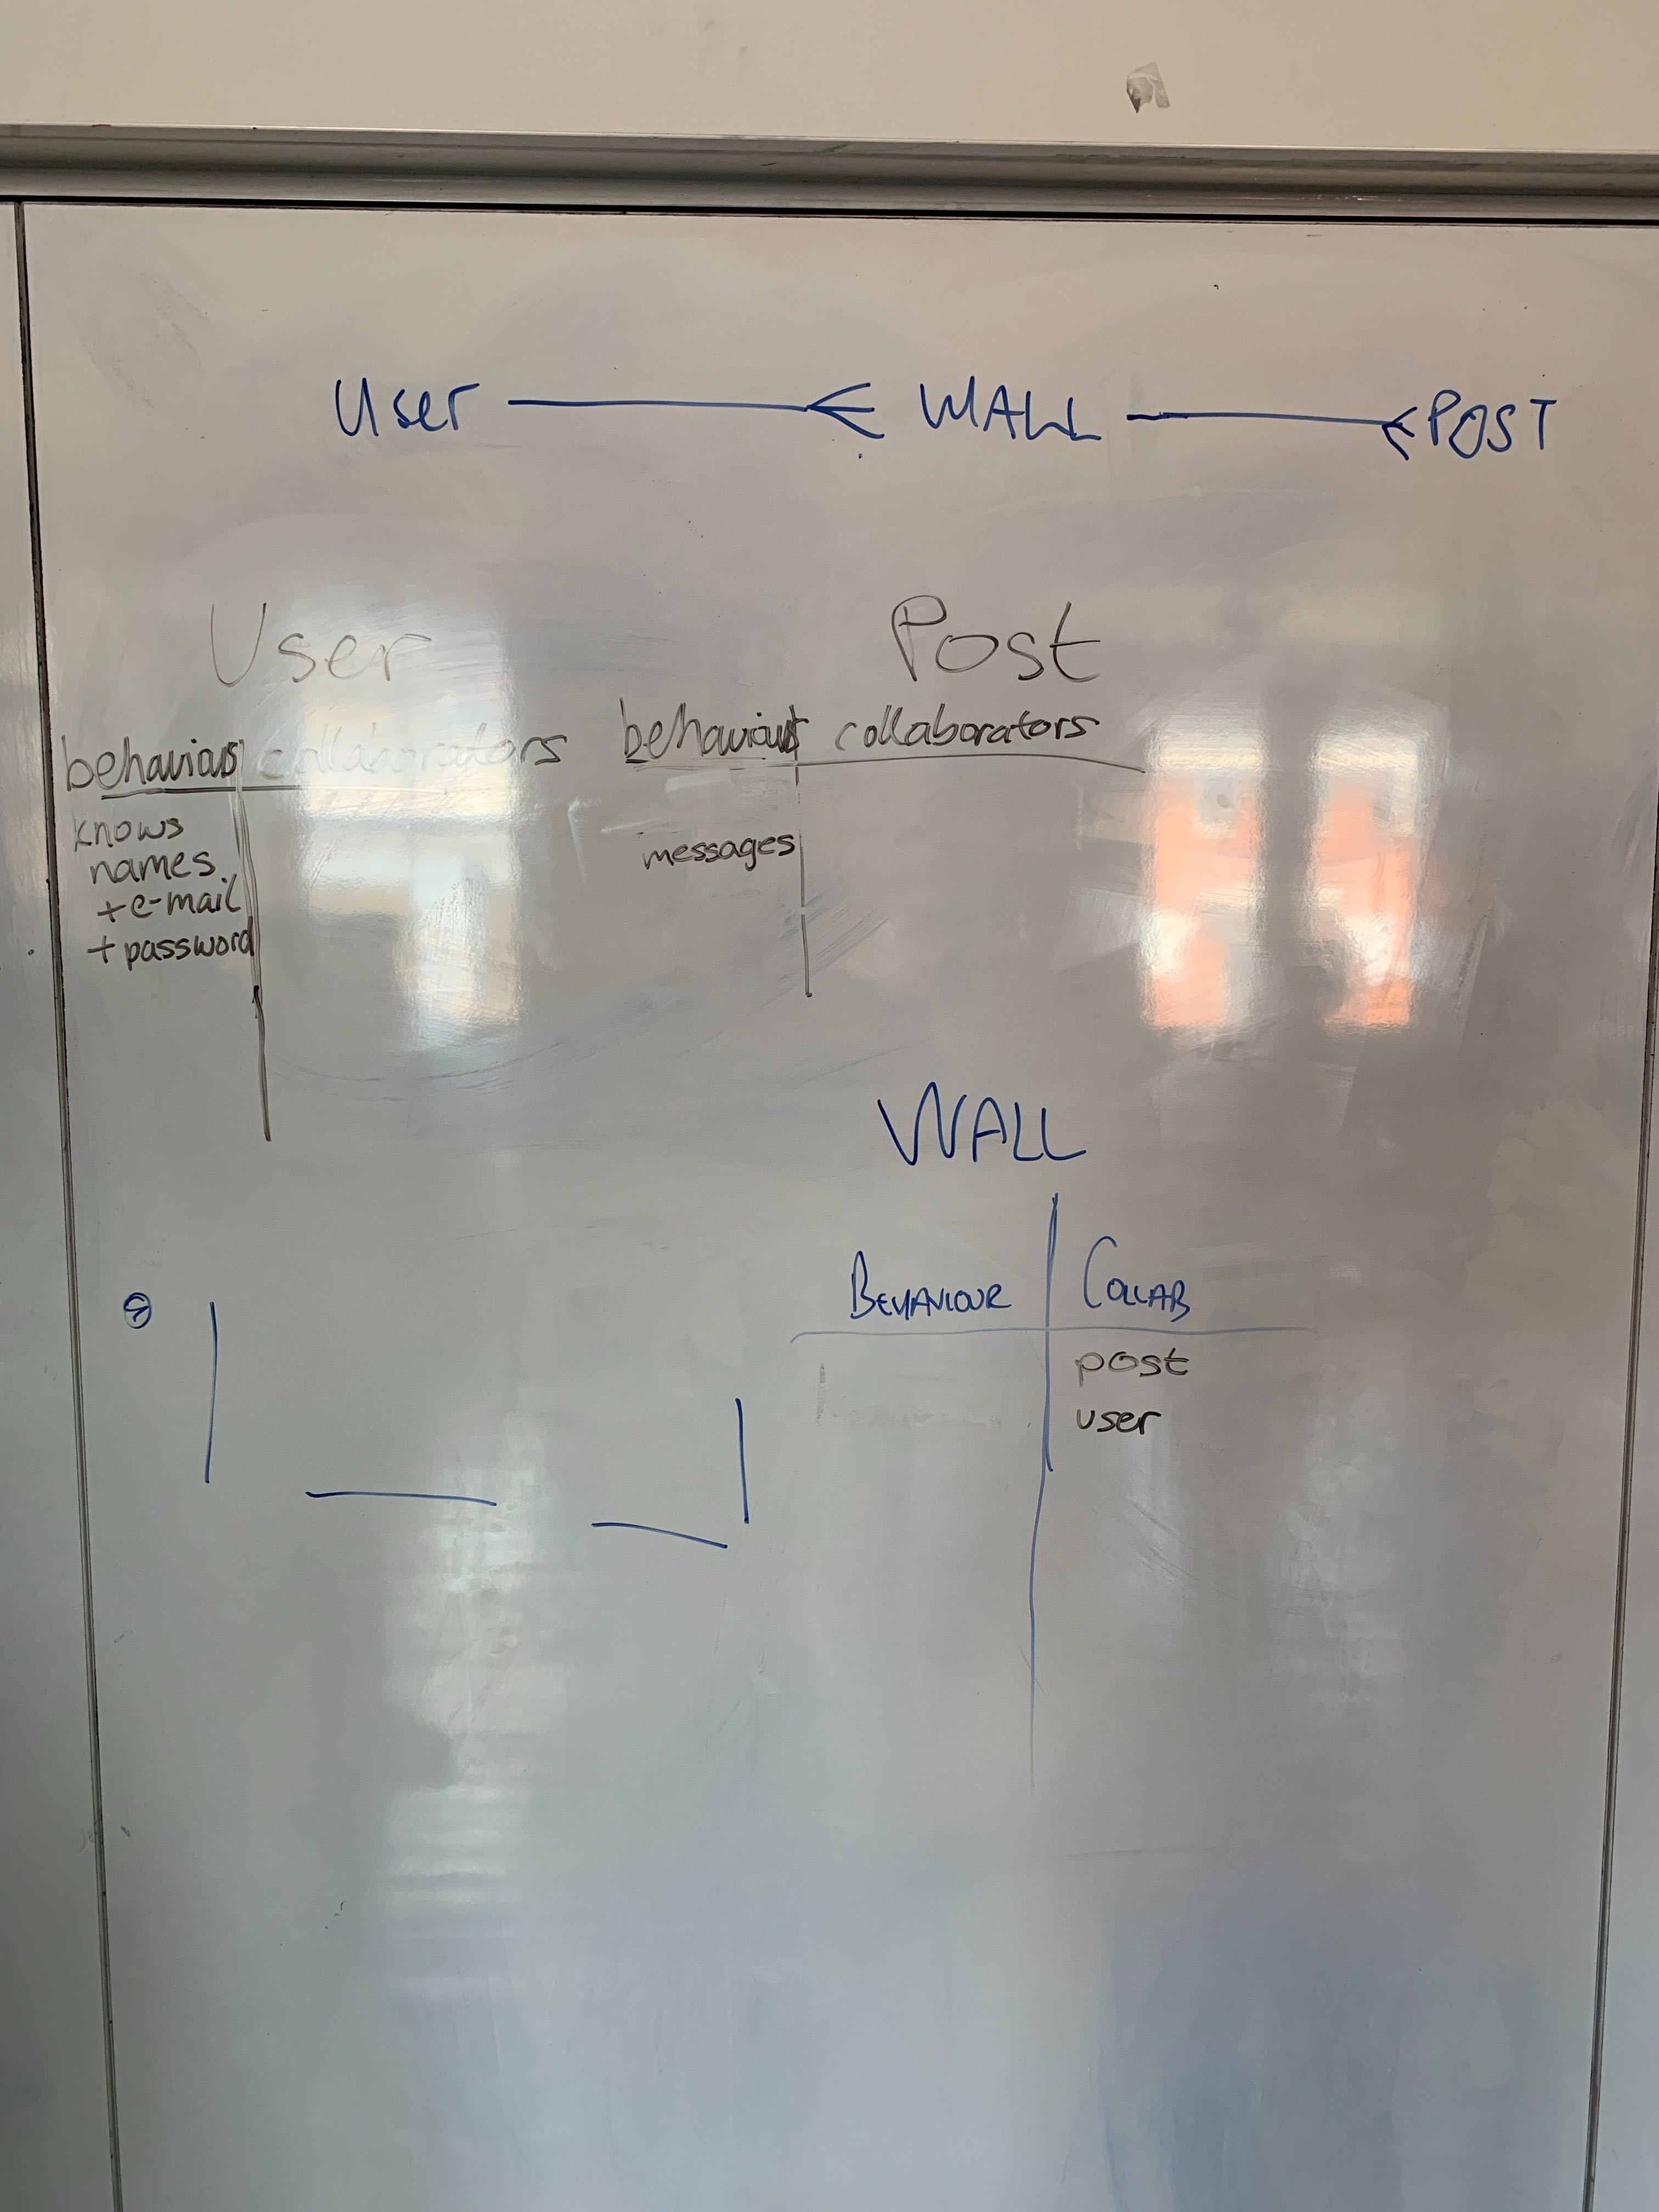 User WALL POST
User
behaviours collaborators
knows
names
+ e-mail
+ password
Post
behaviours collaborators
messages
WALL
BEHAVIOUR COLLAB
post
user